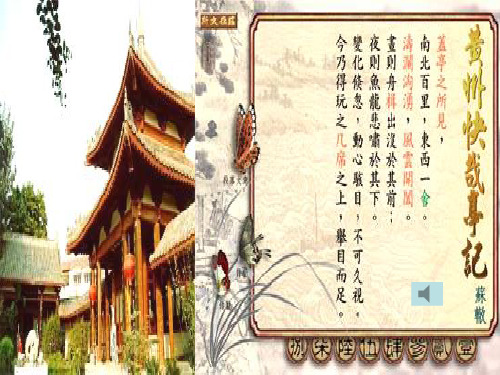 黃州快哉亭記
蘇轍
蓋亭之所見，
南北百里，東西一舍。
濤瀾洶湧，風雲開闔。
晝則舟楫出沒於其前；
夜則魚龍悲嘯於其下。
變化倏忽，動心駭目，不可久視。
今乃得玩之几席之上，舉目而足。
捌柒陸伍肆參貳壹